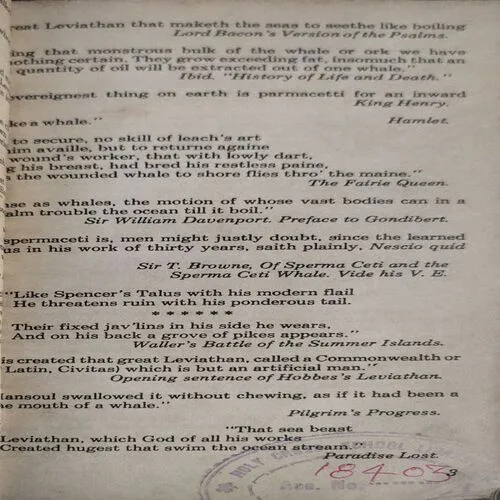 reat Leviathan that maketh the seas to seethe like boiling
Lord Bacon's Version of the Psalms.
ing that monstrous bulk of the whale or ork we have
nothing certain. They grow exceeding fat, insomuch that an
quantity of oil will be extracted out of one whale."
Ibid. "History of Life and Death."
overeignest thing on earth is parmacetti for an inward
King Henry.
ke a whale."
Hamlet.
to secure, no skill of leach's art
him availle, but to returne againe
wound's worker, that with lowly dart,
g his breast, had bred his restless paine,
s the wounded whale to shore flies thro' the maine."
The Fairie Queen.
nse as whales, the motion of whose vast bodies can in a
alm trouble the ocean till it boil."
Sir William Davenport. Preface to Gondibert.
spermaceti is, men might justly doubt, since the learned
us in his work of thirty years, saith plainly, Nescio quid
Sir T. Browne, Of Sperma Ceti and the
Sperma Ceti Whale. Vide his V. E.
"Like Spencer's Talus with his modern flail
He threatens ruin with his ponderous tail.
* * * * * *
Their fixed jav'lins in his side he wears,
And on his back a grove of pikes appears."
Waller's Battle of the Summer Islands.
is created that great Leviathan, called a Commonwealth or
Latin, Civitas) which is but an artificial man."
Opening sentence of Hobbes's Leviathan.
ansoul swallowed it without chewing, as if it had been a
e mouth of a whale."
Pilgrim's Progress.
"That sea beast
Leviathan, which God of all his works
Created hugest that swim the ocean stream."
Paradise Lost.
HOLY SCHOOL
Acc. No. 18403
3